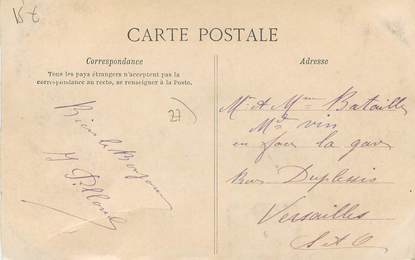 15 €
CARTE POSTALE
Correspondance
Tous les pays étrangers n'acceptent pas la
correspondance au recto, se renseigner à la Poste.
Adresse
27
Bien le Bonjour
M et Mme Bataille
Md vin
en face la gare
Rue Duplessis
Versailles
S et O